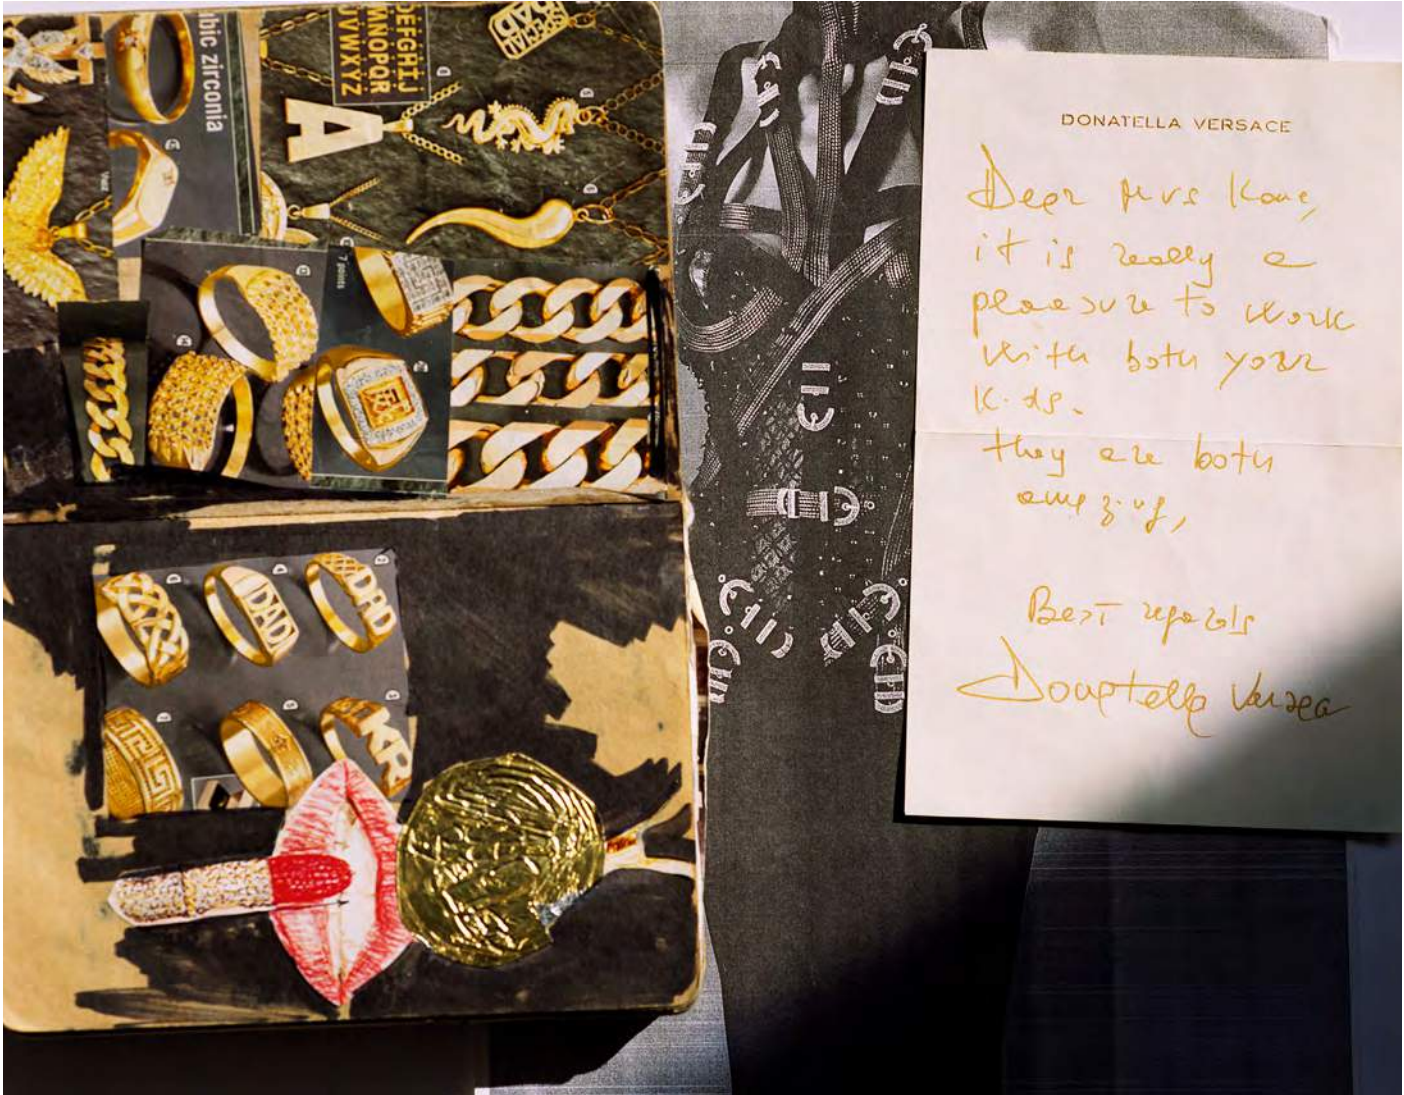 bic zirconia
DEFGHIJ
MNOPQR
UVWXYZ
SPECIAL
DAD
A
7 points
DAD
DAD
DONATELLA VERSACE
Dear Mrs Kane,
it is really a
pleasure to work
with both your
kids.
they are both
amazing,
Best regards
Donatella Versace